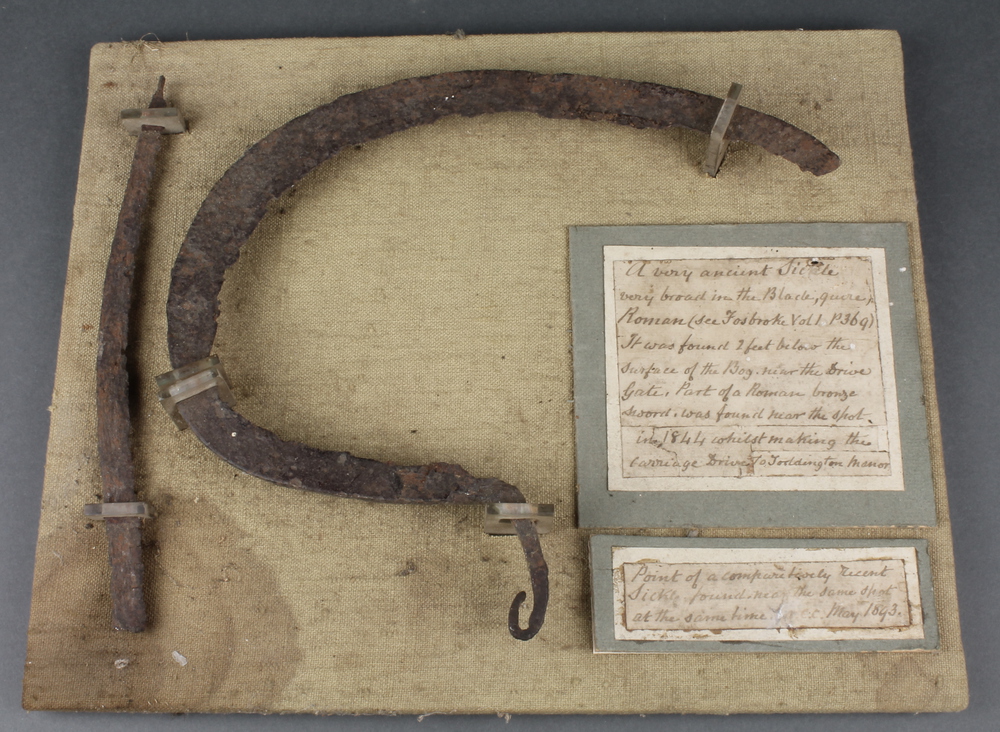 A very ancient Sickle
very broad in the Blade, quere,
Roman (see Fosbroke Vol 1. P369)
It was found 2 feet below the
surface of the Bog. near the Drive
Gate. Part of a Roman bronze
sword. was found near the spot.
in 1844 whilst making the
Carriage Drive To Toddington Manor
Point of a comparitively recent
Sickle found near the same spot
at the same time May 1893.